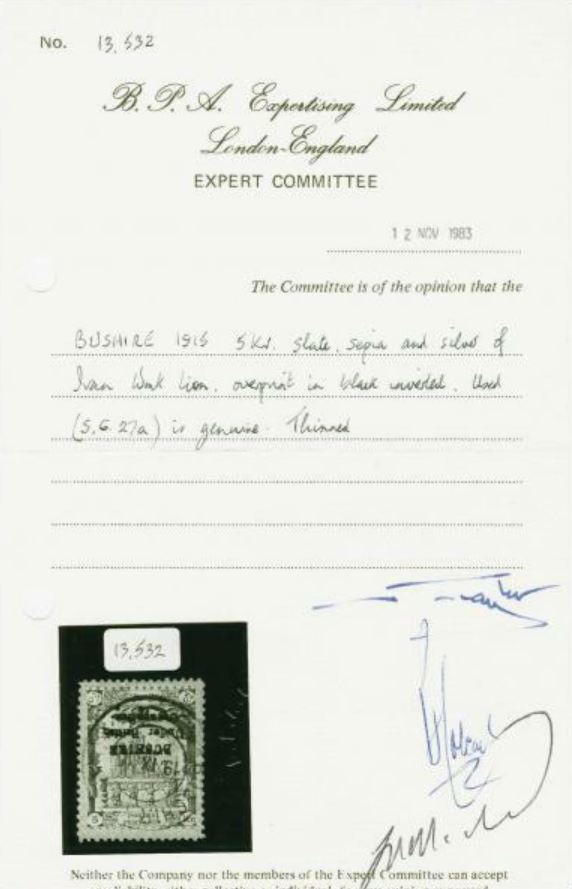 No. 13,532
B. P. A. Expertising Limited
London-England
EXPERT COMMITTEE
12 NOV 1983
The Committee is of the opinion that the
BUSHIRE 1915 5Kr. slate, sepia and silver of
Iran Wmk Lion, overprint in black inverted. Used
(S.G. 27a) is genuine. Thinned
13,532
BUSHIRE
Under British
Occupation.
Neither the Company nor the members of the Expert Committee can accept